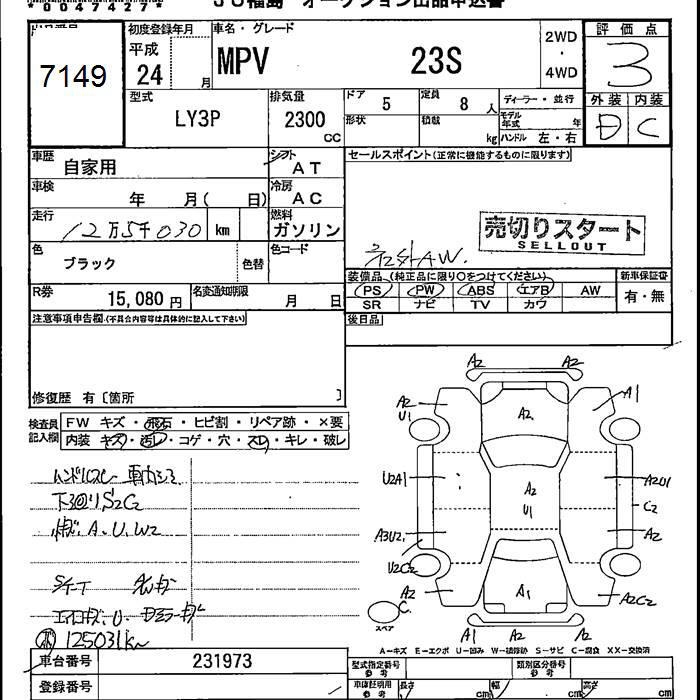 *0047427*
JU福島 オークション出品申込書
7149
初度登録年月
平成
24 月
車名・グレード
MPV 23S
2WD
・
4WD
評価点
3
外装 内装
D C
型式
LY3P
排気量
2300
CC
ドア 5
定員 8 人
形状
積載 kg
ディーラー・並行
モデル年式 年
ハンドル 左・右
車歴 自家用
シフト AT
セールスポイント(正常に機能するものに限ります)
車検 年 月( 日)
冷房 AC
走行 12万5千030 km
燃料 ガソリン
売切りスタート
SELLOUT
社外AW.
色 ブラック 色替
色コード
装備品(純正品に限り○をつけてください)
PS PW ABS エアB AW
SR ナビ TV カワ
新車保証書
有・無
R券 15,080 円
名変通知期限 月 日
後日品
注意事項申告欄(不具合内容等は具体的に記入して下さい)
修復歴 有〔箇所 〕
検査員記入欄
FW キズ・飛石・ヒビ割・リペア跡・×要
内装 キズ・汚レ・コゲ・穴・スレ・キレ・破レ
下回りS2C2
A.U.W2
125031km
A2 A2
A2 U1 A2 A1
U2A1 A2 U1 A2U1
C2
A3U2 A2
U2C2
A2 A1 A2C2
C
スペア
A1 A2
A-キズ E-エクボ U-凹み W-補修跡 S-サビ C-腐食 XX-交換済
車台番号 231973
登録番号
型式指定番号 参考
類別区分番号 参考
車庫証明用 参考
長さ cm 幅 cm 高さ cm